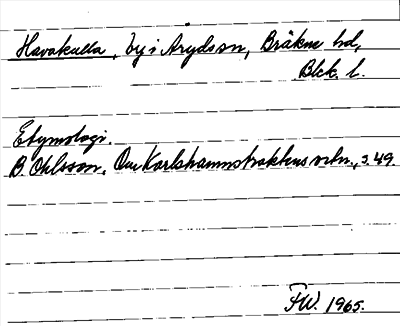 Havakulla, by i Arydssn, Bräkne hd,
Blek. l.
Etymologi.
B. Ohlsson, Om Karlshamnstraktens ortn., s. 49.
FW. 1965.